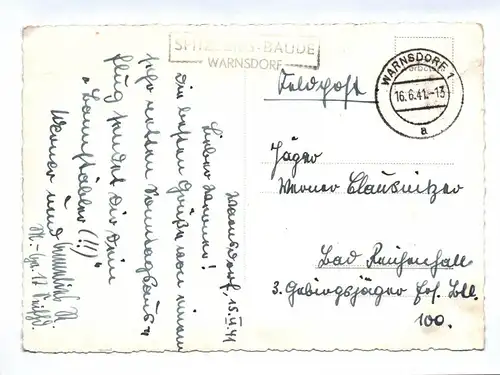 SPITZBERG-BAUDE
WARNSDORF
WARNSDORF 1
16.6.41.-13
a
Feldpost
Jäger
Werner Clausnitzer
Bad Reichenhall
3. Gebirgsjäger Ers. Btl.
100.
Warnsdorf, 15.VI.41
Lieber Werner!
Die besten Grüße von einem
Sonntagsaus-
flug sendet Dir Dein
(!!)"
Werner und